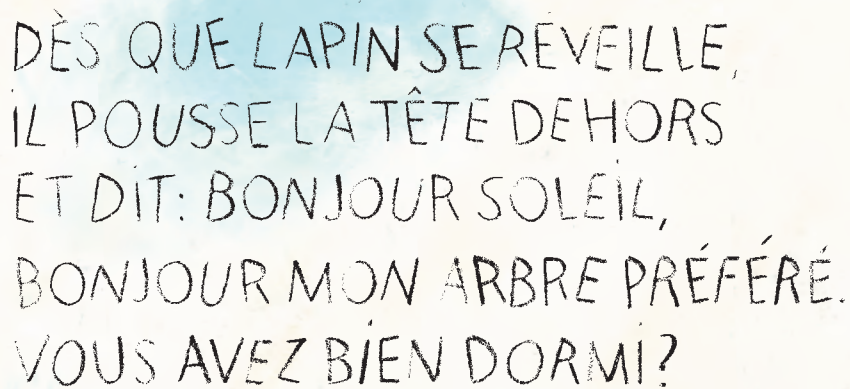 DÈS QUE LAPIN SE RÉVEILLE,
IL POUSSE LA TÊTE DEHORS
ET DIT: BONJOUR SOLEIL,
BONJOUR MON ARBRE PRÉFÉRÉ.
VOUS AVEZ BIEN DORMI?